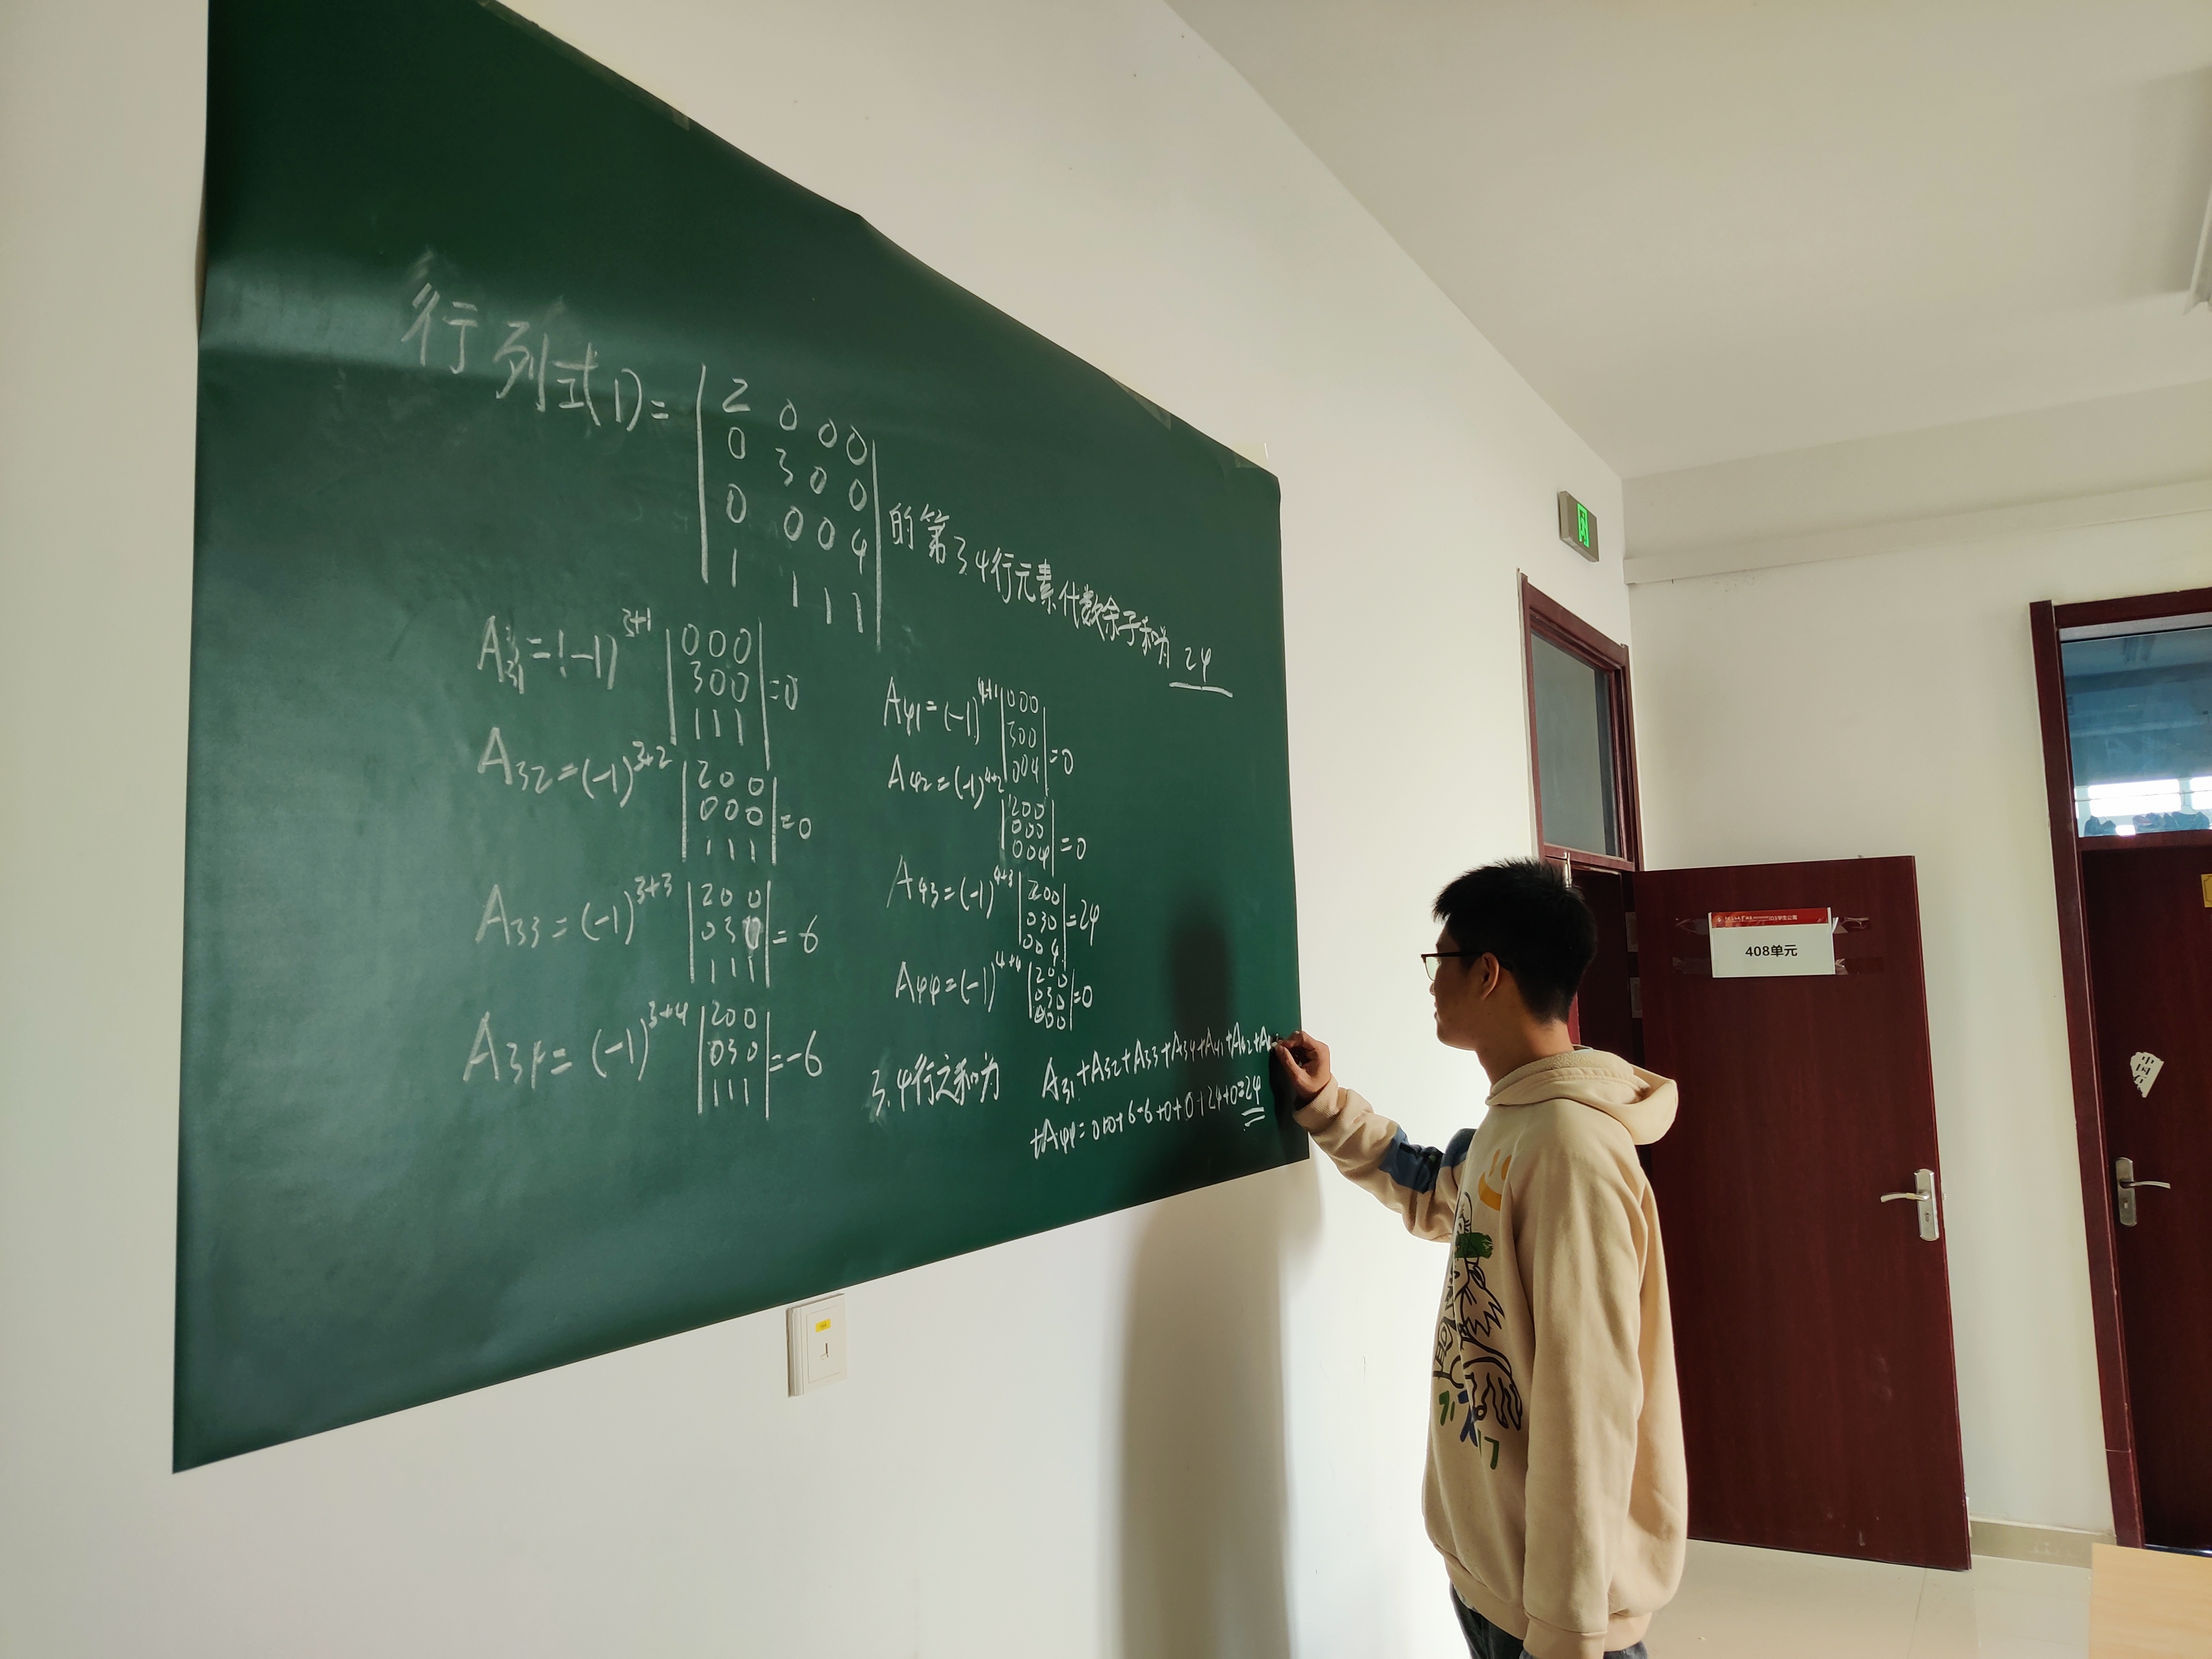 行列式D=
2 0 0 0
0 3 0 0
0 0 0 4
1 1 1 1
的第3.4行元素代数余子和为 24
A31=(-1)^3+1
0 0 0
3 0 0
1 1 1
=0
A32=(-1)^3+2
2 0 0
0 0 0
1 1 1
=0
A33=(-1)^3+3
2 0 0
0 3 0
1 1 1
=6
A34=(-1)^3+4
2 0 0
0 3 0
1 1 1
=-6
A41=(-1)^4+1
0 0 0
3 0 0
0 0 4
=0
A42=(-1)^4+2
2 0 0
0 0 0
0 0 4
=0
A43=(-1)^4+3
2 0 0
0 3 0
0 0 4
=24
A44=(-1)^4+4
2 0 0
0 3 0
0 0 0
=0
3.4行之和为
A31+A32+A33+A34+A41+A42+
+A44=0+0+6-6+0+0+24+0=24
408单元
中国